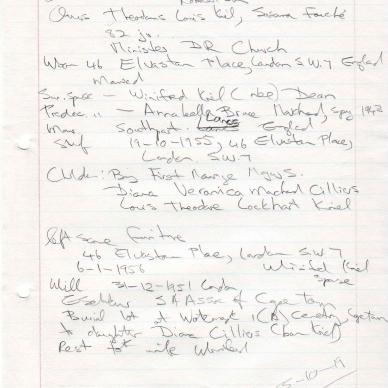 Ouers Theodorus Louis Kiel, Susara Fouché
82 jr.
Minister DR Church
Woon 46 Elvaston Place, London S.W.7 England
Married
Sur. spse - Winifred Kiel (née) Dean
Predec. " - Annabella Bruce
Southport England
Sterf 19-10-1955, 46 Elvaston Place,
London S.W.7
Childer: By First Marriage
Diana Veronica Cilliers
Louis Theodore Lockhart Kriel
left some furniture
46 Elvaston Place, London S.W.7
6-1-1956 Winifred Kriel
spouse
Will 31-12-1951 London
S A Assoc of Cape Town
Burial lot at Cemetery Capetown
to daughter Diana Cilliers (born Kriel)
Rest to wife Winifred
5-10-19